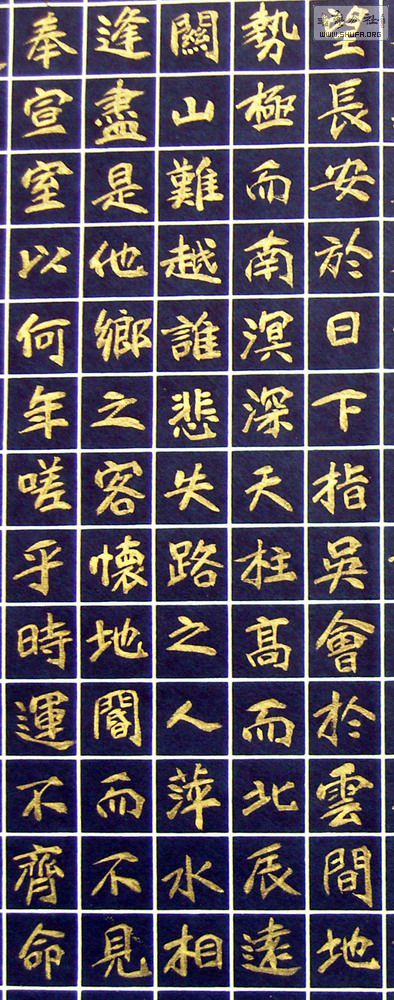 望長安於日下指吳會於雲間地
勢極而南溟深天柱髙而北辰遠
關山難越誰悲失路之人萍水相
逢盡是他鄉之客懷地閽而不見
奉宣室以何年嗟乎時運不齊命
WWW.SHUFA.ORG